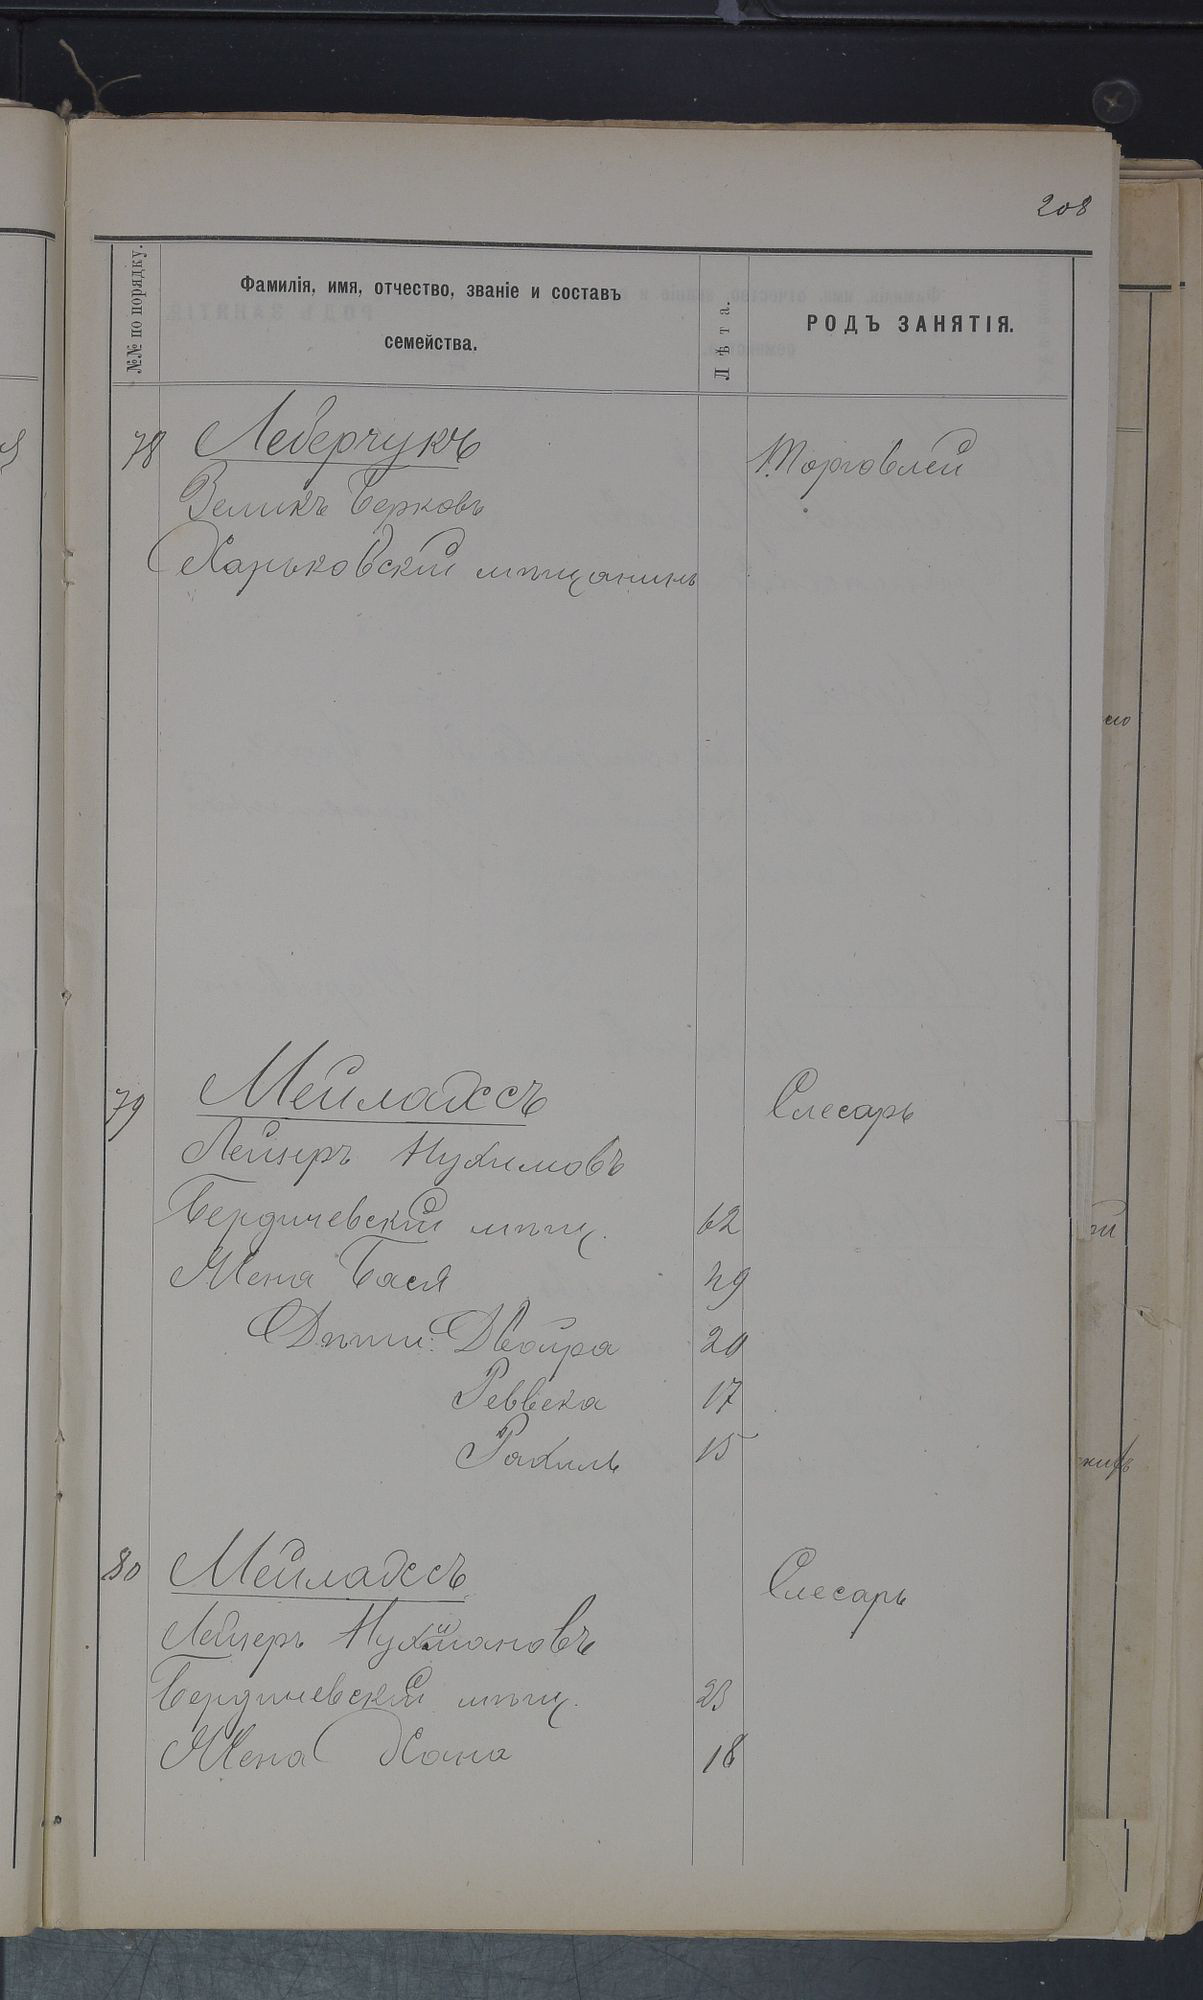 208
№№ по порядку.
Фамилія, имя, отчество, званіе и составъ
семейства.
Лѣта.
РОДЪ ЗАНЯТІЯ.
78 Леберчукъ Торговлей
Зеликъ Берковъ
Харьковскій мѣщанинъ
79 Мейлахсъ Слесарь
Лейзеръ Нухимовъ
Бердичевскій мѣщ. 62
Жена Бася 49
Дѣти: Двойра 20
Реввека 17
Рахиль 15
80 Мейлахсъ Слесарь
Лейзеръ
Бердичевскій мѣщ. 23
Жена Хана 18